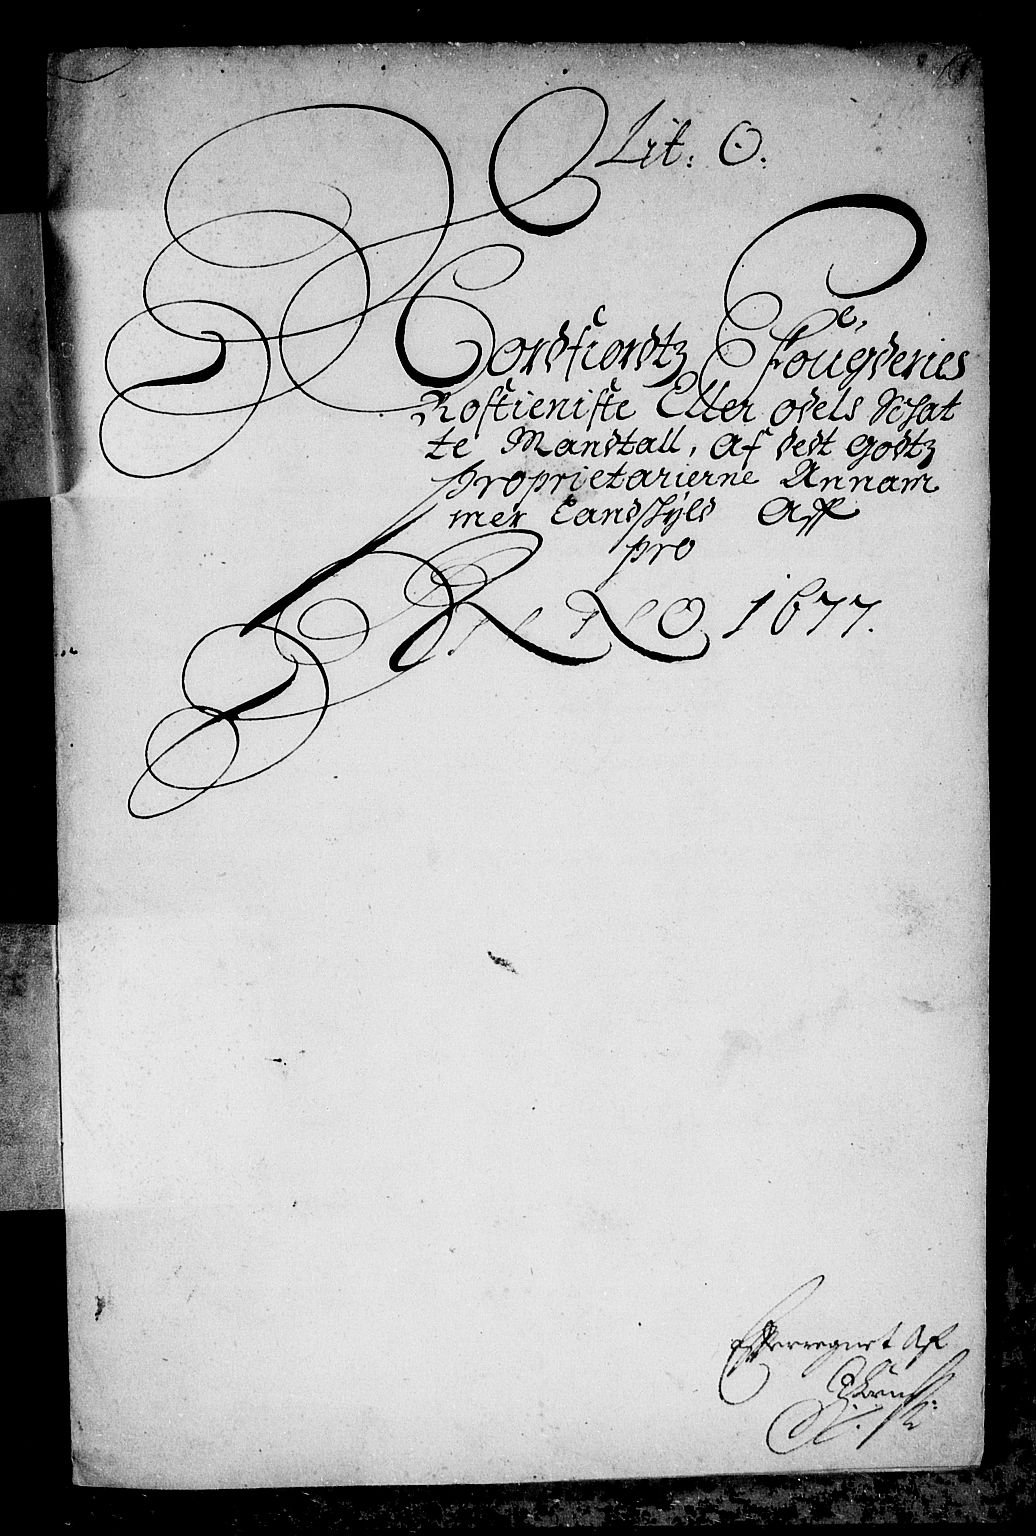 Lit: O.
Nordfiordtz Fougderies
Rostieniste Eller odels Schat
te Mandtall, af dedt godtz
proprietarierne Annam
mer Landskyld Aff
pro
ANNO 1677.
Efterregnet Af